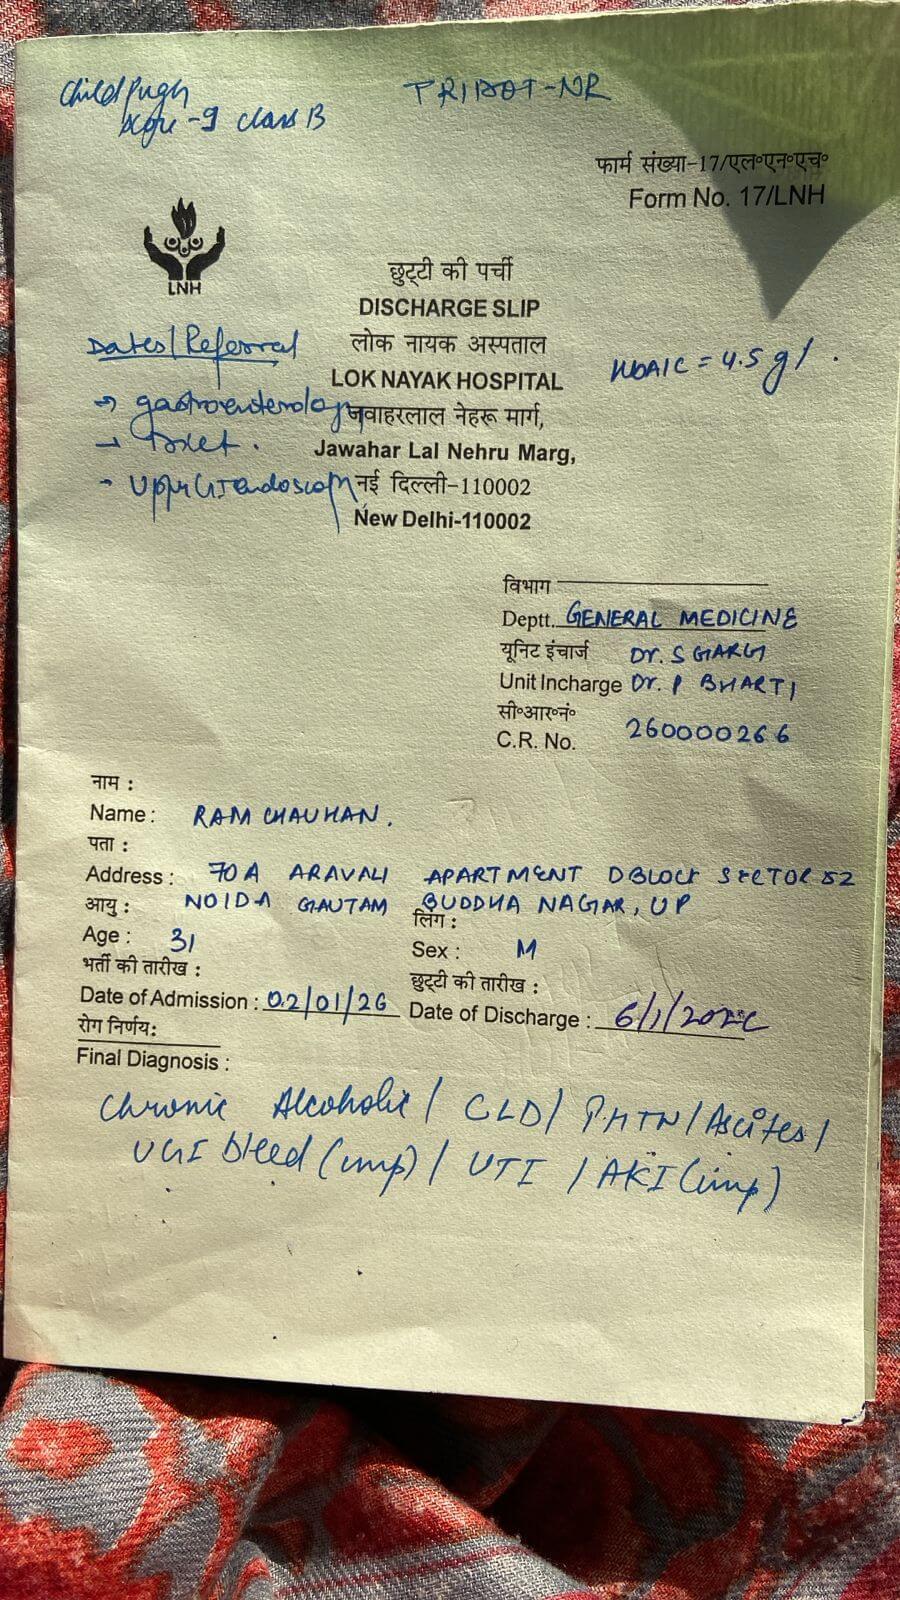 Child Pugh
Score -9 class B
TRIDOT-NR
फार्म संख्या-17/एल०एन०एच०
Form No. 17/LNH
LNH
छुट्टी की पर्ची
DISCHARGE SLIP
लोक नायक अस्पताल
LOK NAYAK HOSPITAL
जवाहरलाल नेहरू मार्ग,
Jawahar Lal Nehru Marg,
नई दिल्ली-110002
New Delhi-110002
Dates/Referral
→ gastroenterology
→
- Upper GI endoscopy
HbA1C = 4.5 g/.
विभाग
Deptt. GENERAL MEDICINE
यूनिट इंचार्ज Dr. S GARG
Unit Incharge Dr. P BHARTI
सी०आर०नं०
C.R. No. 260000266
नाम :
Name : RAM CHAUHAN.
पता :
Address : 70A ARAVALI APARTMENT D BLOCK SECTOR 52
NOIDA GAUTAM BUDDHA NAGAR, UP
आयु :
लिंग :
Age : 31
Sex : M
भर्ती की तारीख :
छुट्टी की तारीख :
Date of Admission : 02/01/26
Date of Discharge : 6/1/2026
रोग निर्णय:
Final Diagnosis :
Chronic Alcoholic / CLD / PHTN / Ascites /
UGI bleed (imp) / UTI / AKI (imp)